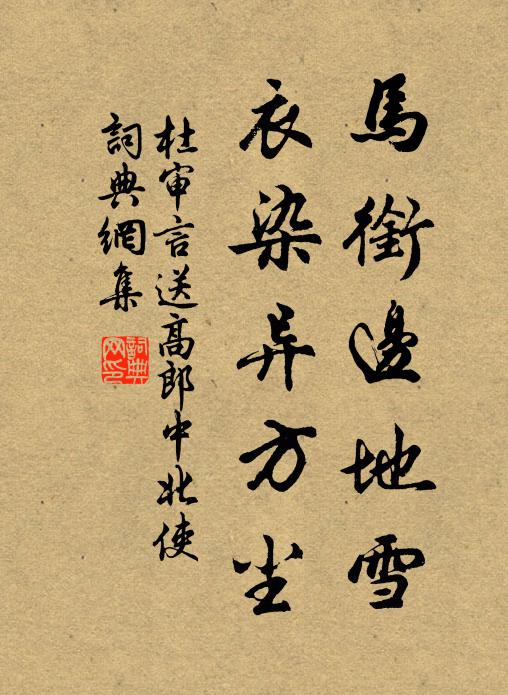 馬銜邊地雪
衣染异方尘
杜审言送高郎中北使
詞典網集
詞典
网印